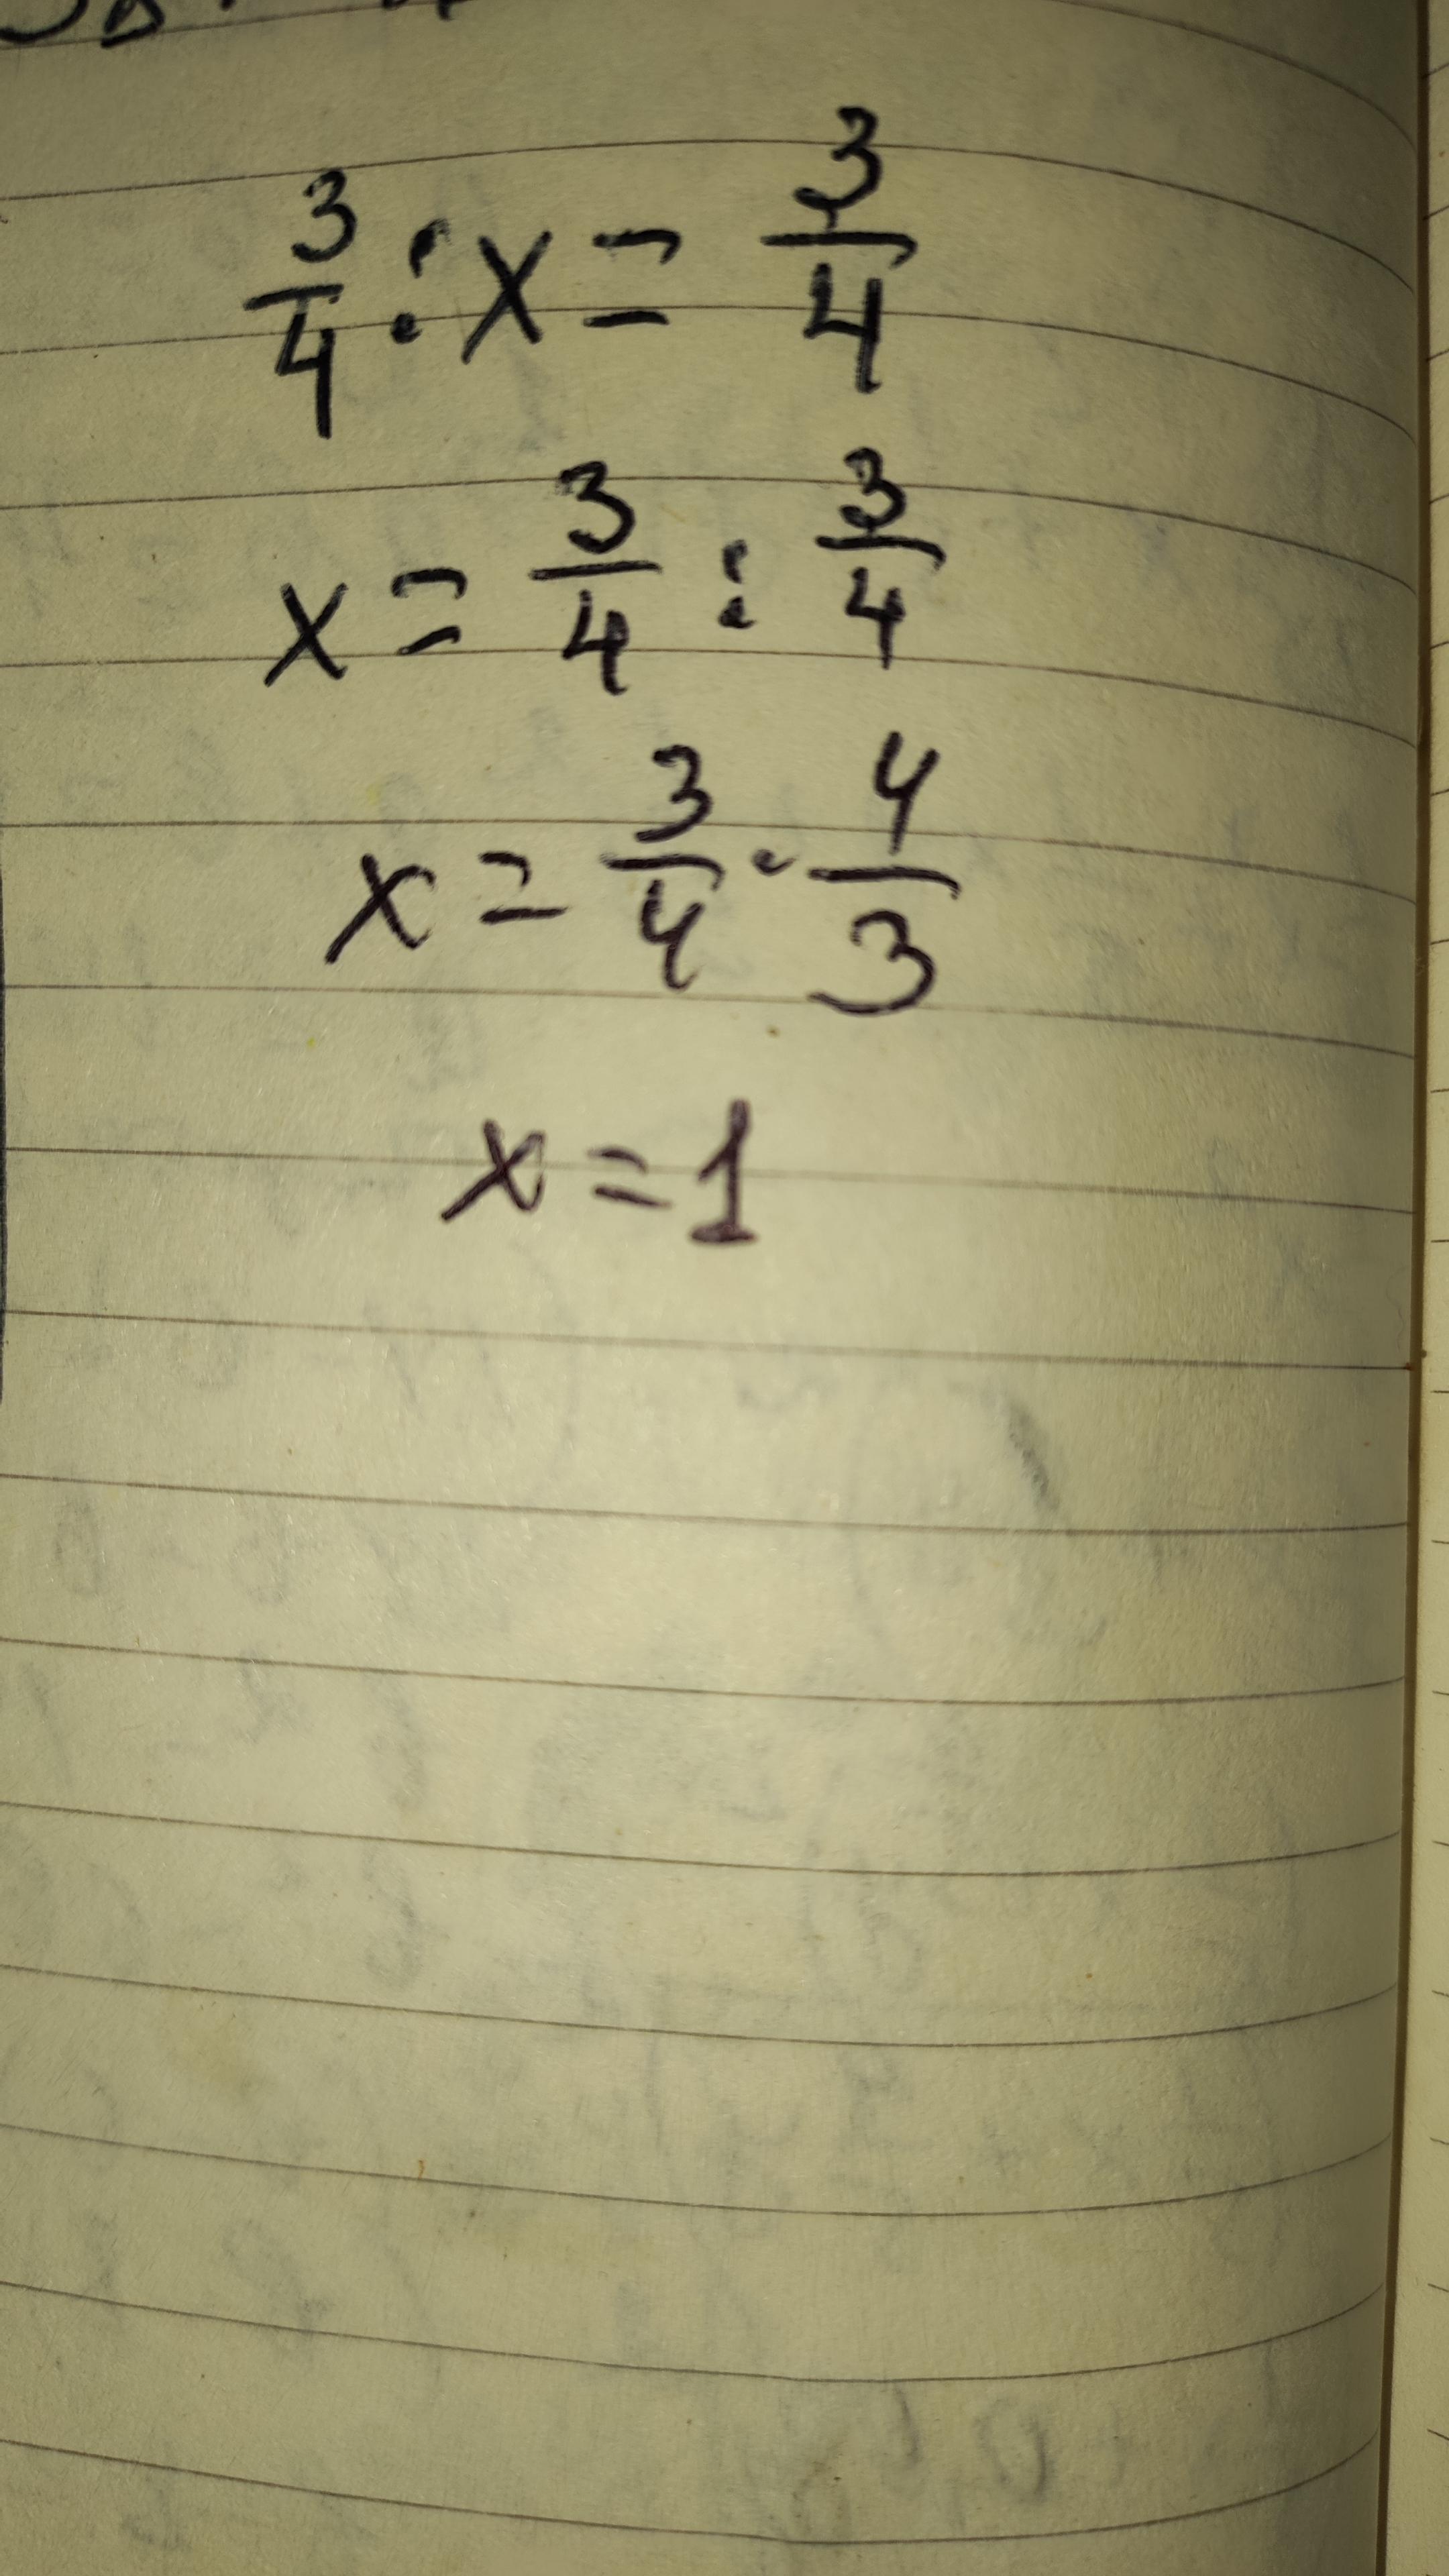 3/4 : x = 3/4
x = 3/4 : 3/4
x = 3/4 · 4/3
x = 1